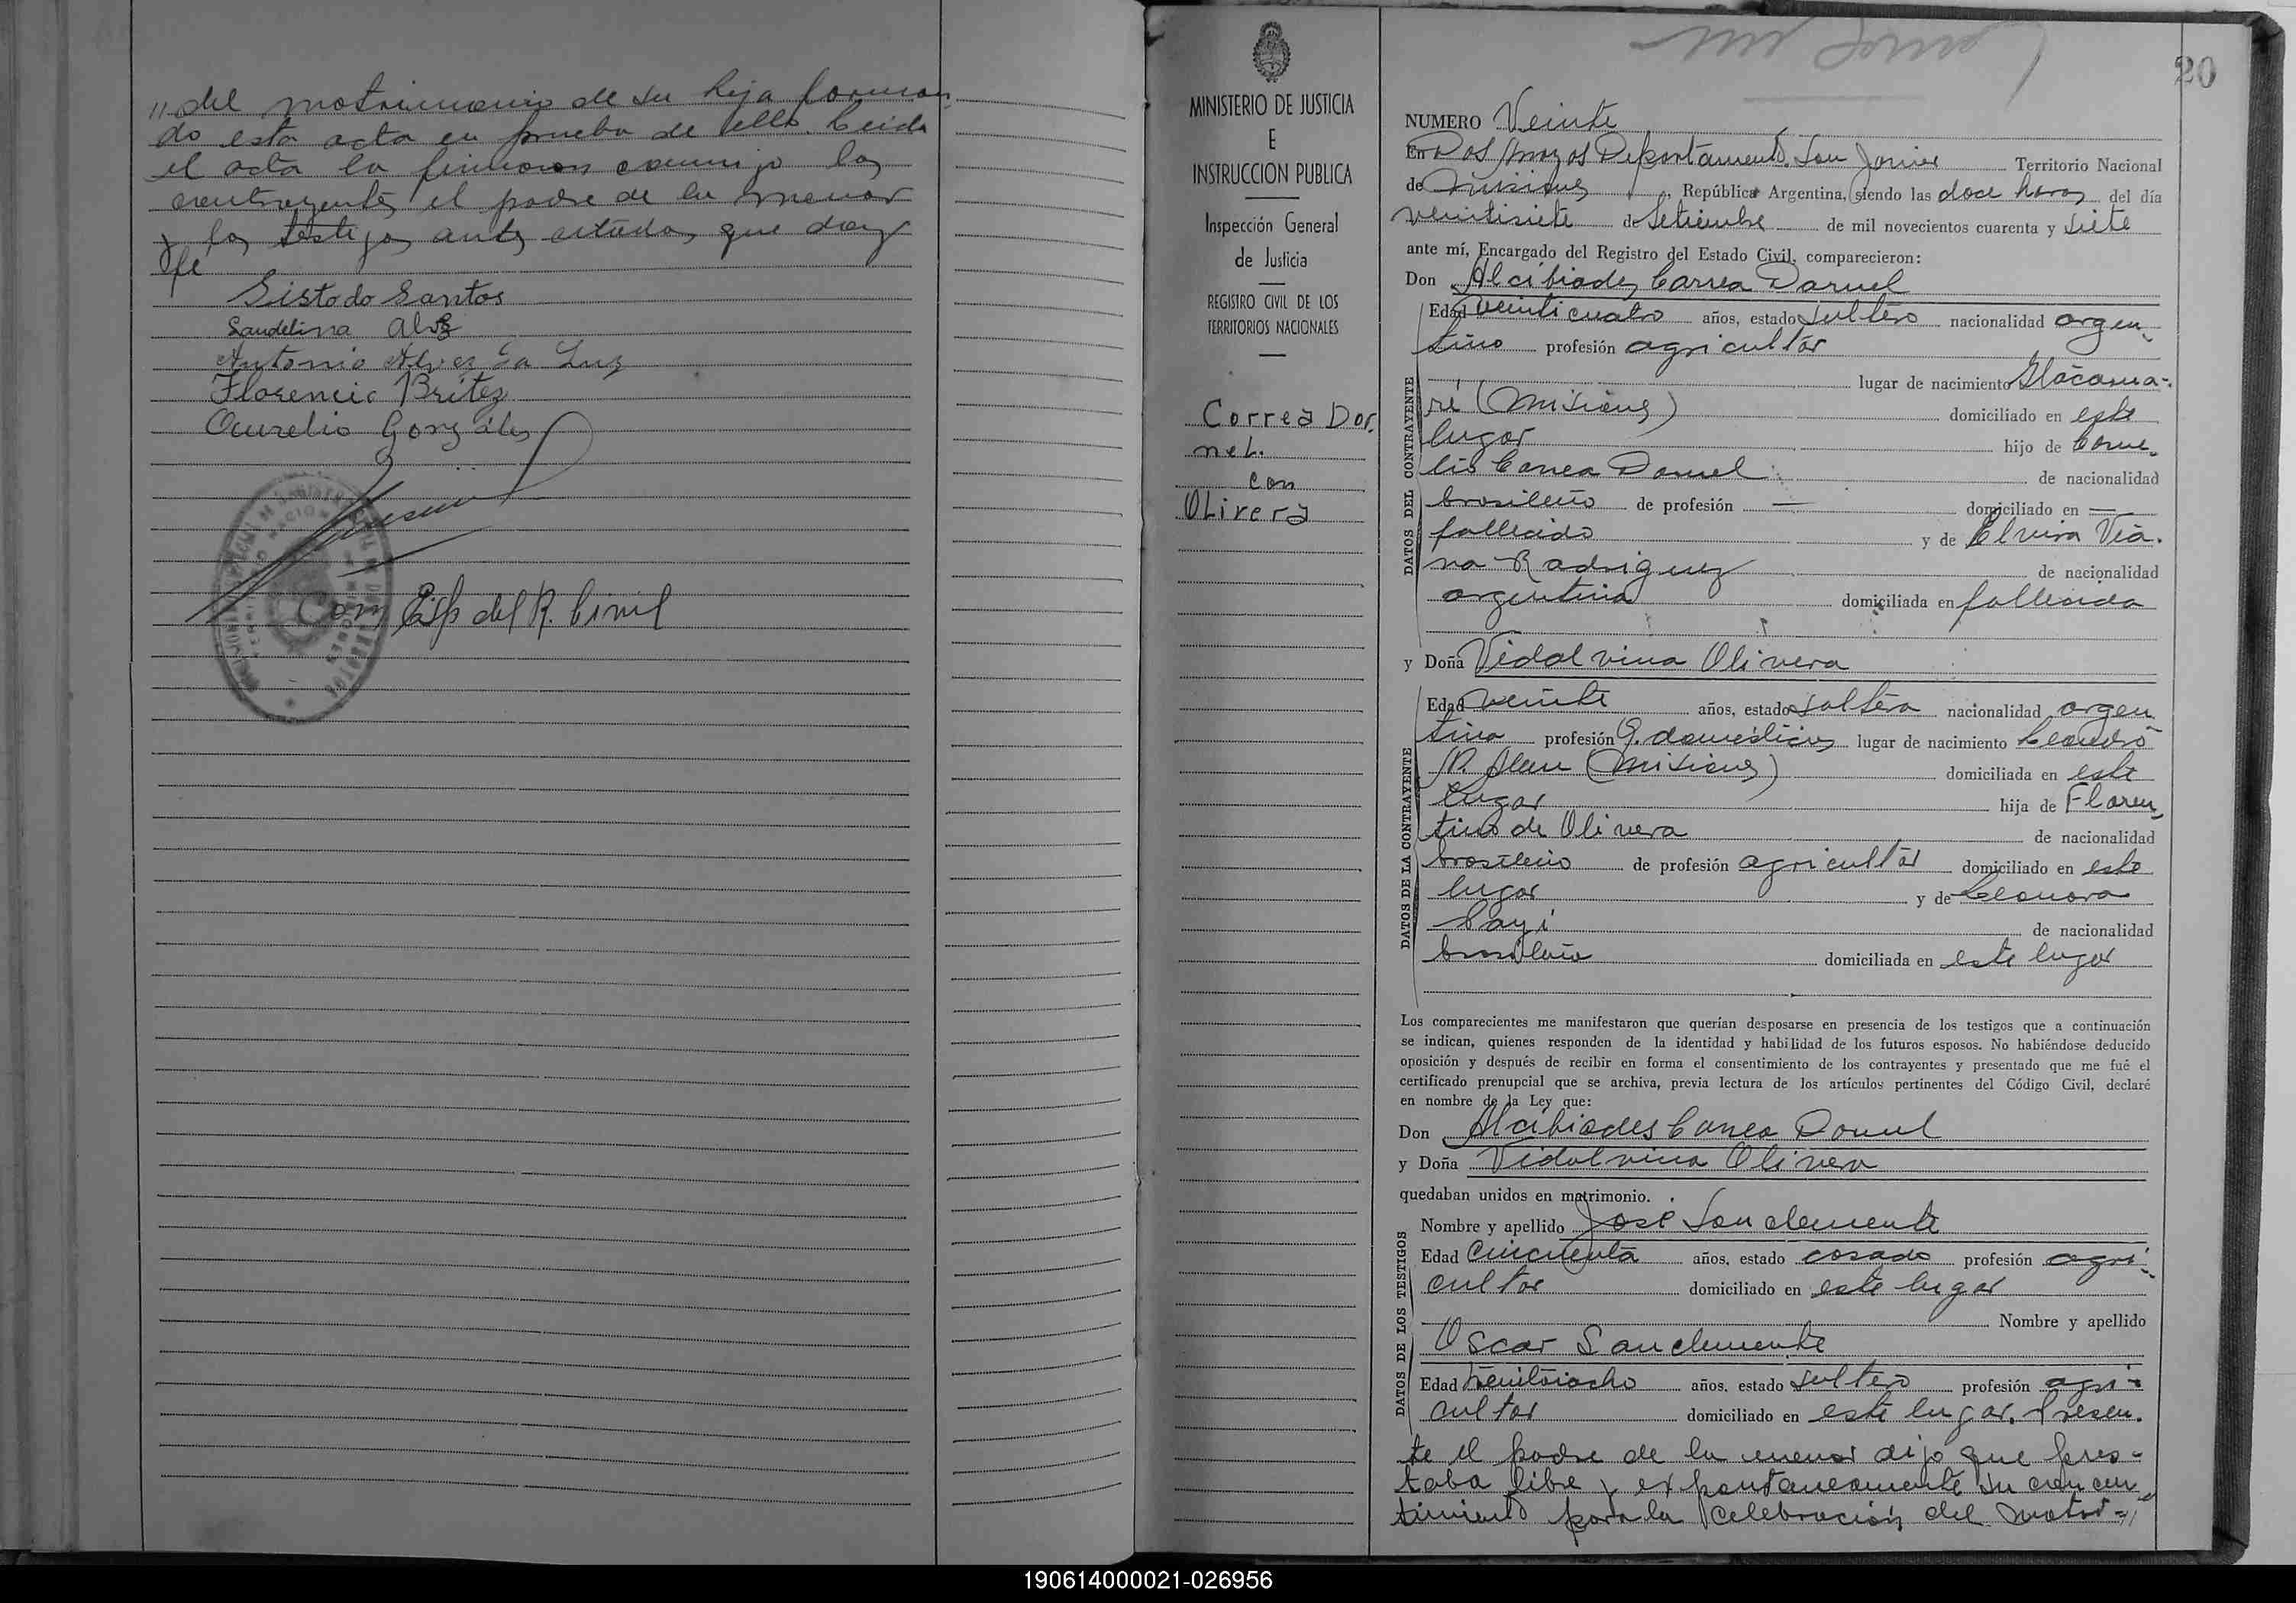 // del matrimonio de su hija forman
do esta acta en prueba de ello. Leida
el acta la firmaron conmigo los
contrayentes el padre de la menor
y los testigos antes citados que doy
fe
Sisto do Santos
Saudelina Alvez
Antonio Alvez da Luz
Florencio Britez
Aurelio González
Enc del R. Civil
MINISTERIO DE JUSTICIA
E
INSTRUCCION PUBLICA
Inspección General
de Justicia
REGISTRO CIVIL DE LOS
TERRITORIOS NACIONALES
Correa Dor
nel.
con
Olivera
20
NUMERO Veinte
En Dos Arroyos Departamento San Javier Territorio Nacional
de Misiones, República Argentina, siendo las doce horas del día
veintisiete de Setiembre de mil novecientos cuarenta y siete
ante mí, Encargado del Registro del Estado Civil, comparecieron:
Don Alcibiades Correa Dornel
DATOS DEL CONTRAYENTE
Edad veinticuatro años, estado soltero nacionalidad argen-
tino profesión agricultor
lugar de nacimiento
ri (Misiones) domiciliado en este
lugar hijo de Corne-
lio Correa Dornel de nacionalidad
brasileño de profesión — domiciliado en —
fallecido y de Elvira Via-
na Rodriguez de nacionalidad
argentina domiciliada en fallecida
y Doña Vidalvina Olivera
DATOS DE LA CONTRAYENTE
Edad veinte años, estado soltera nacionalidad argen
tina profesión Q. domésticos lugar de nacimiento Leandro
N. Alem (Misiones) domiciliada en este
lugar hija de Floren-
tino de Olivera de nacionalidad
brasileño de profesión agricultor domiciliado en este
lugar y de Leonora
de nacionalidad
brasileña domiciliada en este lugar
Los comparecientes me manifestaron que querían desposarse en presencia de los testigos que a continuación
se indican, quienes responden de la identidad y habilidad de los futuros esposos. No habiéndose deducido
oposición y después de recibir en forma el consentimiento de los contrayentes y presentado que me fué el
certificado prenupcial que se archiva, previa lectura de los artículos pertinentes del Código Civil, declaré
en nombre de la Ley que:
Don Alcibiades Correa Dornel
y Doña Vidalvina Olivera
quedaban unidos en matrimonio.
DATOS DE LOS TESTIGOS
Nombre y apellido José Sanclemente
Edad cincuenta años, estado casado profesión agri-
cultor domiciliado en este lugar
Nombre y apellido
Oscar Sanclemente
Edad años, estado soltero profesión agri-
cultor domiciliado en este lugar. Presen-
te el padre de la menor dijo que pres-
taba libre y expontaneamente su concen
timiento para la celebración del matri-//
190614000021-026956